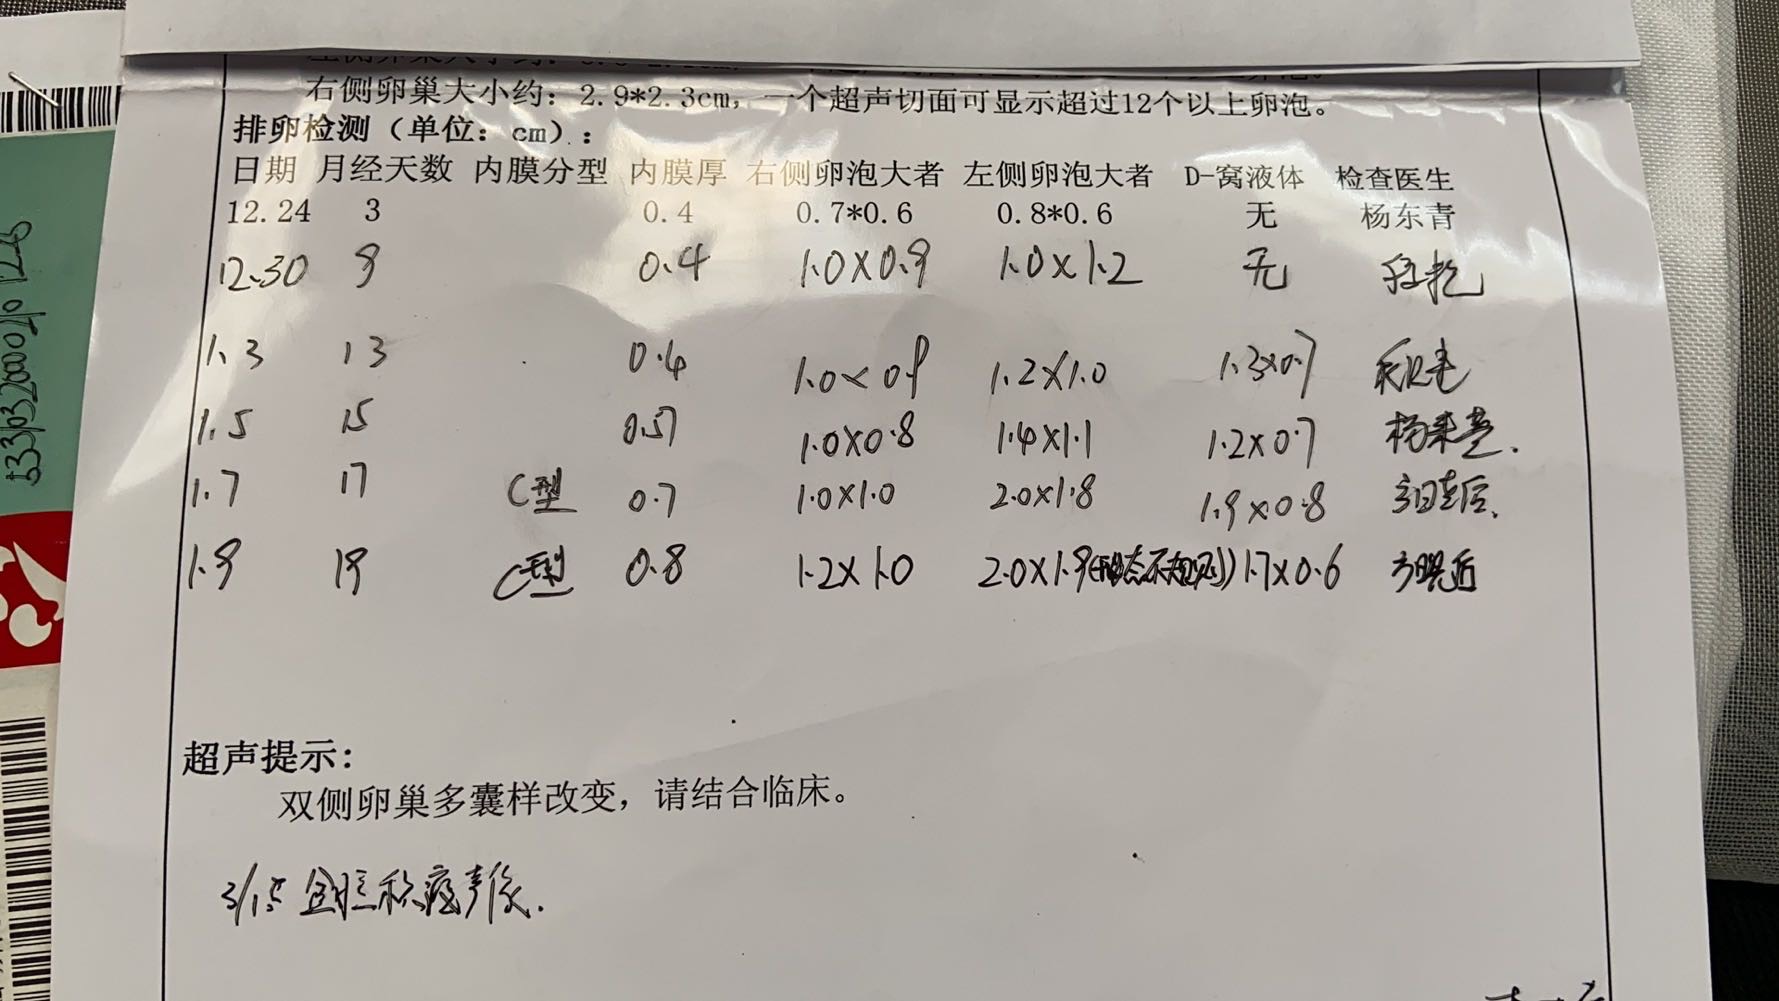 右侧卵巢大小约：2.9*2.3cm，一个超声切面可显示超过12个以上卵泡。
排卵检测（单位：cm）：
日期 月经天数 内膜分型 内膜厚 右侧卵泡大者 左侧卵泡大者 D-窝液体 检查医生
12.24 3 0.4 0.7*0.6 0.8*0.6 无 杨东青
12.30 9 0.4 1.0×0.9 1.0×1.2 无
1.3 13 0.4 1.0×0.9 1.2×1.0 1.3×0.7
1.5 15 0.57 1.0×0.8 1.4×1.1 1.2×0.7
1.7 17 C型 0.7 1.0×1.0 2.0×1.8 1.9×0.8
1.9 19 C型 0.8 1.2×1.0 2.0×1.9(形态不规则) 1.7×0.6
超声提示：
双侧卵巢多囊样改变，请结合临床。
盆腔积液声像.